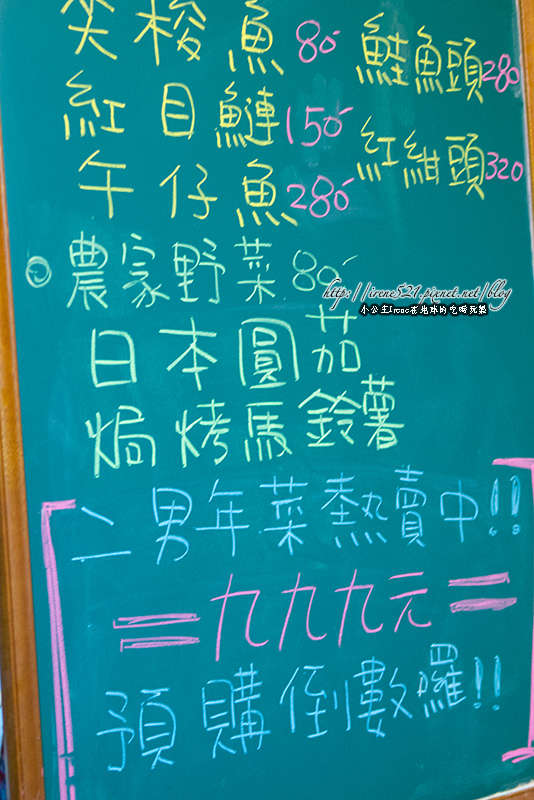 尖梭魚 80
鮭魚頭 280
紅目鰱 150
紅紺頭 320
午仔魚 280
農家野菜 80
http://irene521.pixnet.net/blog
小公主Irene在地球的吃喝玩樂
日本圓茄
焗烤馬鈴薯
二男年菜熱賣中!!
=九九九元=
預購倒數囉!!